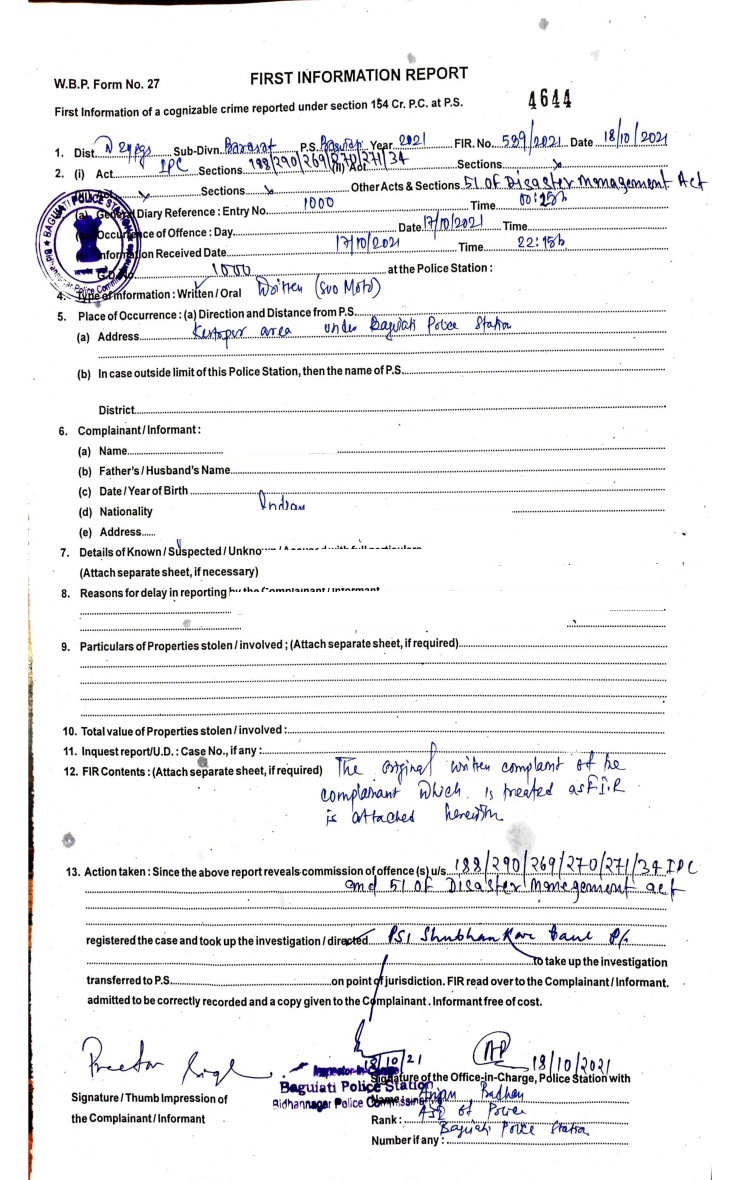 W.B.P. Form No. 27
FIRST INFORMATION REPORT
4644
First Information of a cognizable crime reported under section 154 Cr. P.C. at P.S.
1. Dist. N 24 pgs Sub-Divn. Barasat P.S. Baguiati Year 2021 FIR. No. 589/2021 Date 18/10/2021
2. (i) Act IPC Sections 188/290/269/270/271/34 (ii) Act Sections
Sections Other Acts & Sections 51 of Disaster management Act
(a) General Diary Reference : Entry No. 1000 Time 00:25h
Occurrence of Offence : Day Date 17/10/2021 Time
Information Received Date 17/10/2021 Time 22:15h
G.D. No. 1000 at the Police Station :
BAGUIATI POLICE STATION
4. Type of Information : Written / Oral Written (Suo Moto)
5. Place of Occurrence : (a) Direction and Distance from P.S.
(a) Address Kestopur area under Baguiati Police Station
(b) In case outside limit of this Police Station, then the name of P.S.
District
6. Complainant / Informant :
(a) Name
(b) Father's / Husband's Name
(c) Date / Year of Birth
(d) Nationality Indian
(e) Address
7. Details of Known / Suspected / Unknown / Accused with full particulars
(Attach separate sheet, if necessary)
8. Reasons for delay in reporting by the Complainant / Informant
9. Particulars of Properties stolen / involved ; (Attach separate sheet, if required)
10. Total value of Properties stolen / involved :
11. Inquest report/U.D. : Case No., if any :
12. FIR Contents : (Attach separate sheet, if required) The original written complaint of the
complainant which is treated as F.I.R
is attached herewith
13. Action taken : Since the above report reveals commission of offence (s) u/s. 188/290/269/270/271/34 IPC
and 51 of Disaster management act
registered the case and took up the investigation / directed PSI Shubhankar
to take up the investigation
transferred to P.S. on point of jurisdiction. FIR read over to the Complainant / Informant.
admitted to be correctly recorded and a copy given to the Complainant. Informant free of cost.
18/10/21
18/10/2021
Inspector-in-Charge
Baguiati Police Station
Bidhannagar Police Commissionerate
Signature of the Office-in-Charge, Police Station with
Signature / Thumb Impression of
the Complainant / Informant
Name :
Rank : ASI of Police
Baguiati Police Station
Number if any :